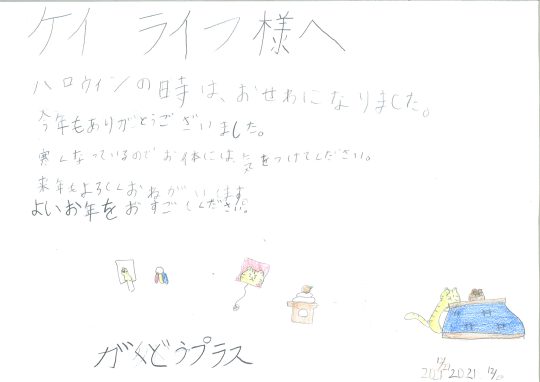 ケイ ライフ様へ
ハロウィンの時は、おせわになりました。
今年もありがとうございました。
寒くなっているのでお体には、気をつけてください。
来年もよろしくおねがいします
よいお年をおすごしください。
がくどうプラス
2021